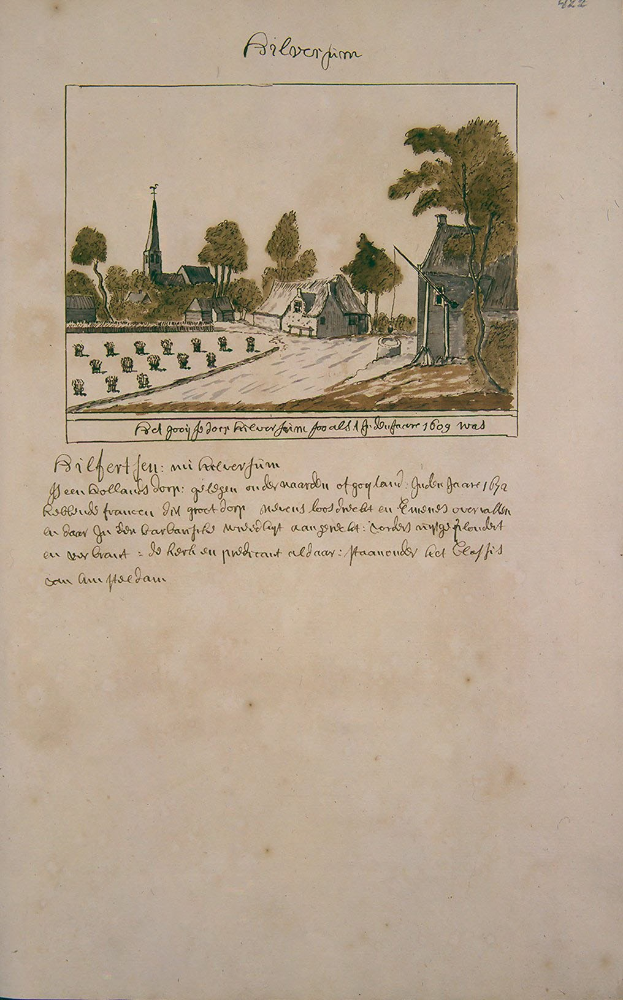 422
Hilversum
Het gooijse dorp hilversum soo als 't Jnden Jaare 1609 was
Hilfertsen: nu hilversum
Js een hollands dorp: gelegen onder naarden of goyland: Jnden Jaare 1672
hebben de francen dit groot dorp nevens loosdrecht en Eemenes overvallen
en daar Jn een barbarische aangerecht: voorders uijtgeplondert
en verbrant: de kerk en predicant aldaar: staan onder het Classis
van Amsteldam